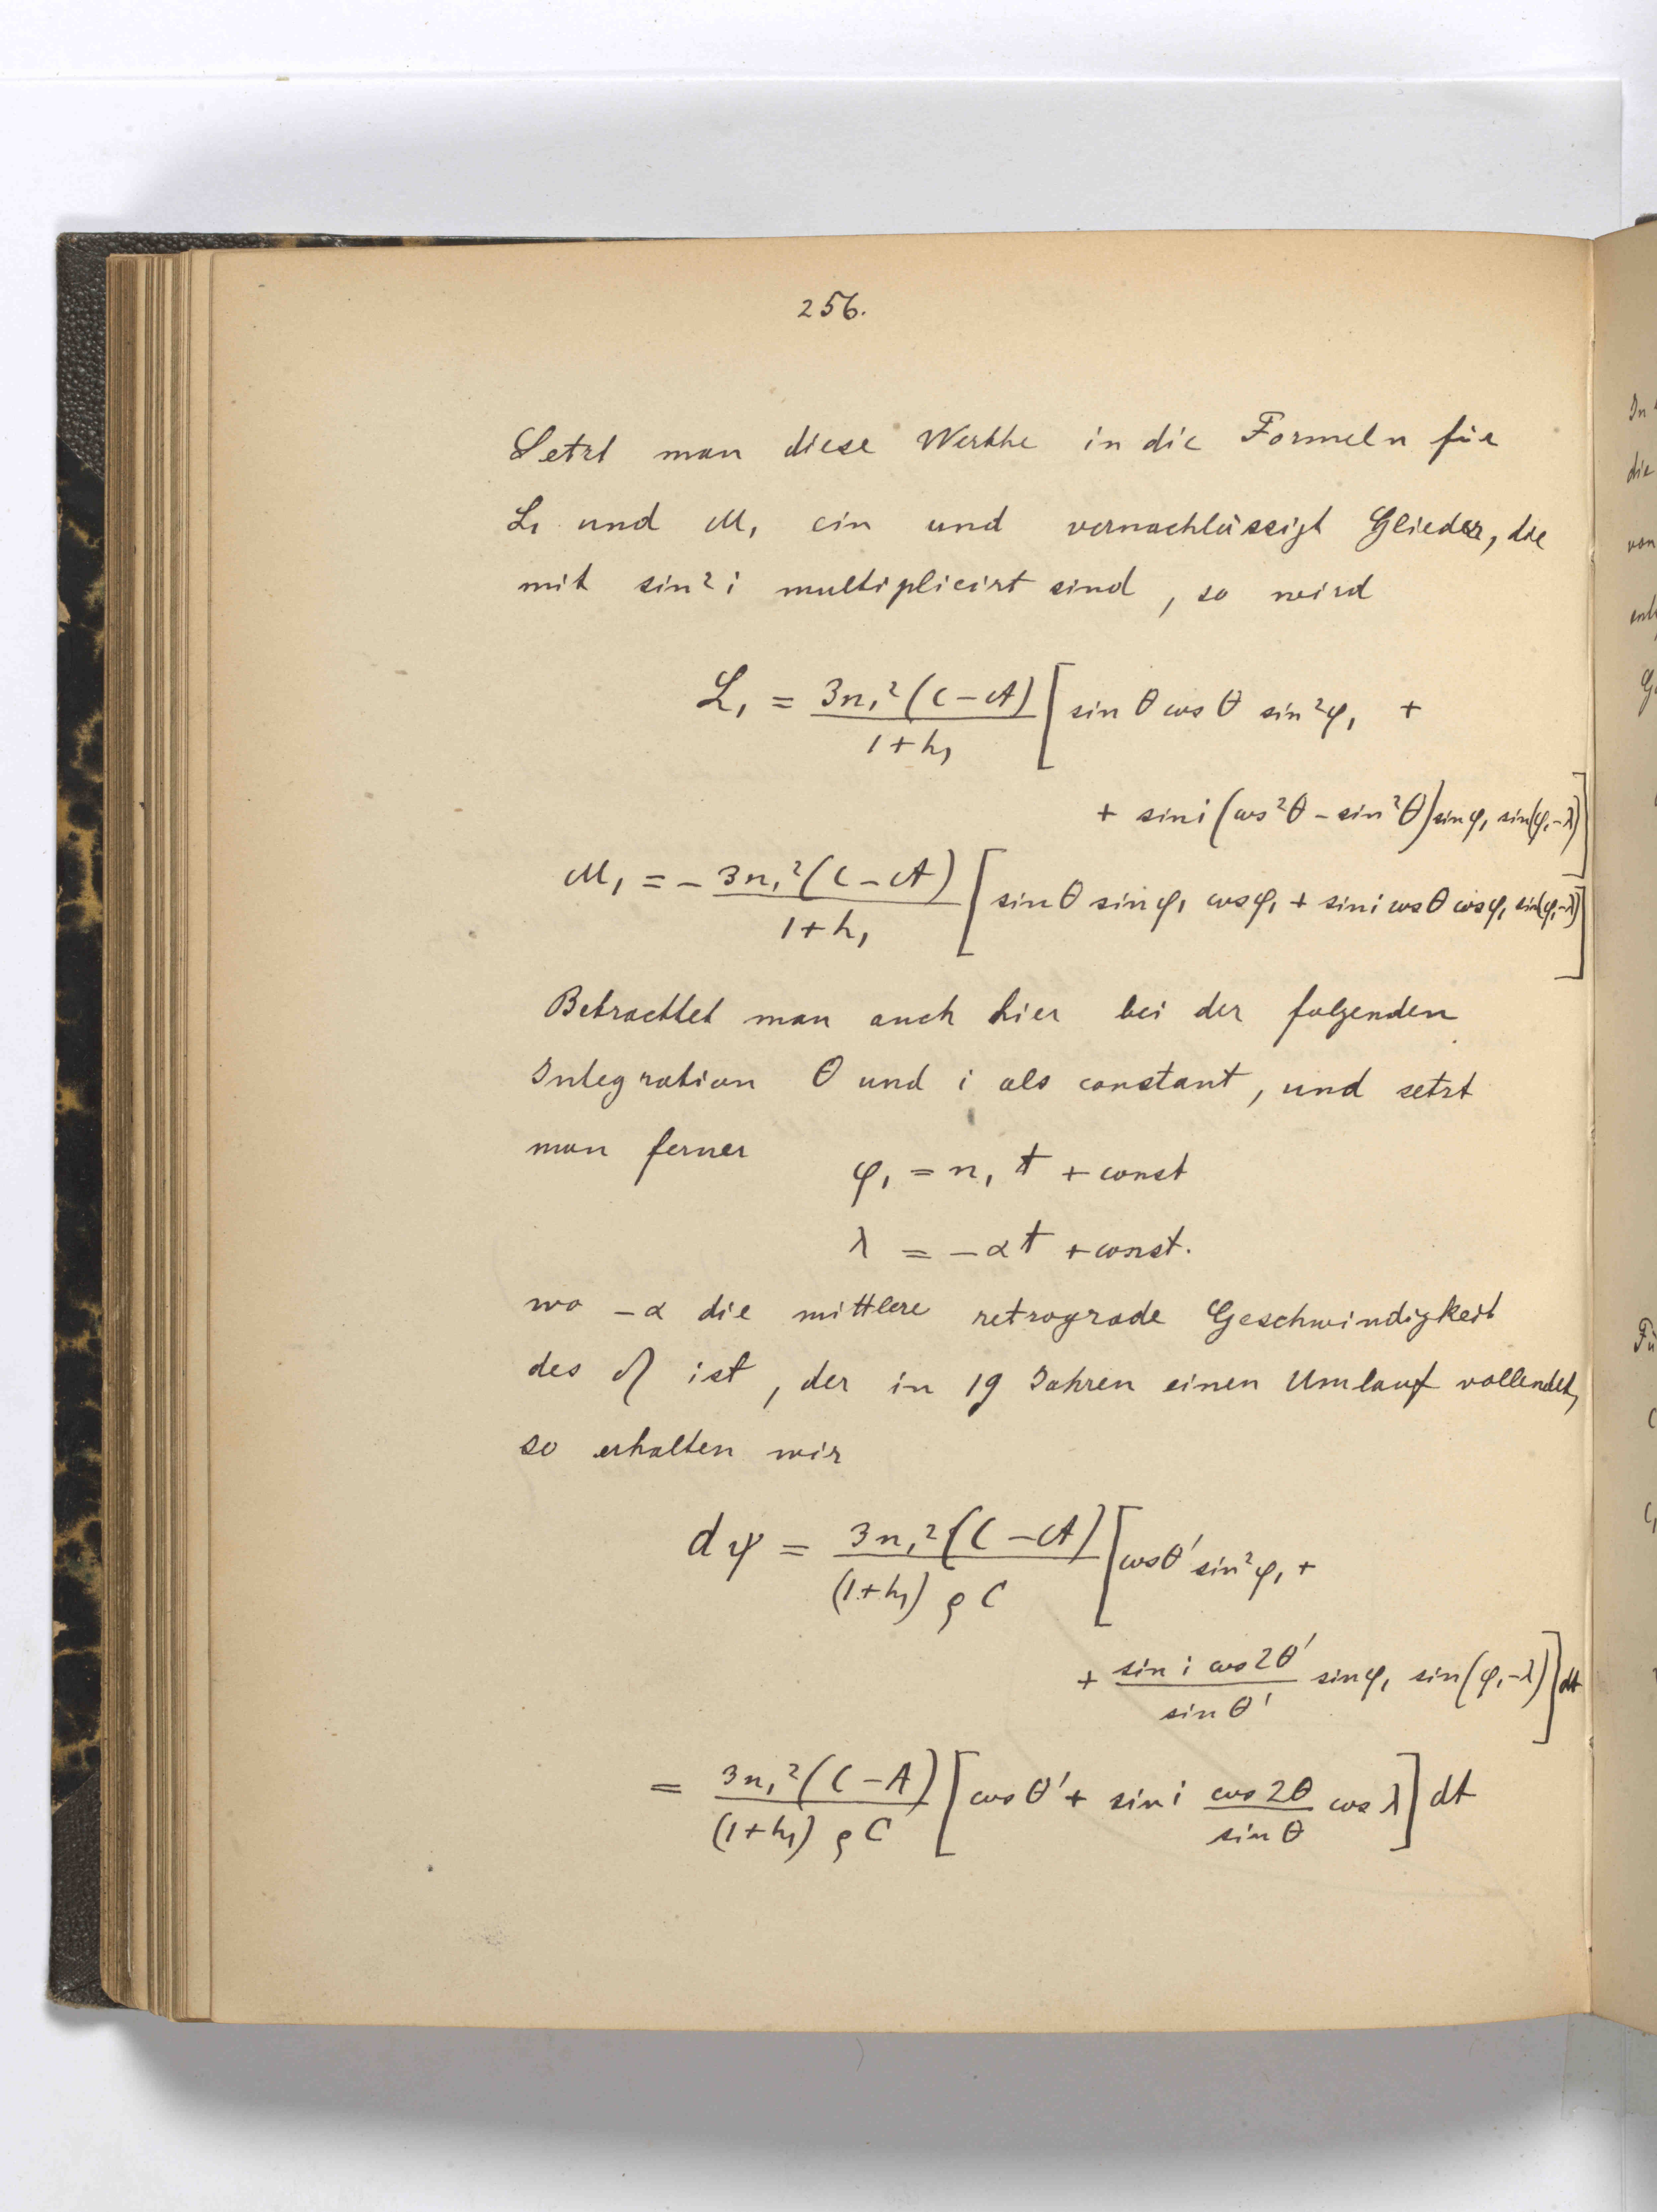 256.
Setzt man diese Werthe in die Formeln für
L₁ und M₁ ein und vernachlässigt Glieder, die
mit sin² i multiplicirt sind, so wird
L₁ = 3n₁²(C−A)/(1+h₁) [sin θ cos θ sin²φ₁ +
+ sin i (cos²θ − sin²θ) sin φ₁ sin(φ₁−λ)]
M₁ = − 3n₁²(C−A)/(1+h₁) [sin θ sin φ₁ cos φ₁ + sin i cos θ cos φ₁ sin(φ₁−λ)]
Betrachtet man auch hier bei der folgenden
Integration θ und i als constant, und setzt
man ferner
φ₁ = n₁ t + const
λ = −αt + const.
wo −α die mittlere retrograde Geschwindigkeit
des ☊ ist, der in 19 Jahren einen Umlauf vollendet,
so erhalten wir
dψ = 3n₁²(C−A)/((1+h₁) ρC) [cos θ′ sin²φ₁ +
+ (sin i cos 2θ′)/(sin θ′) sin φ₁ sin(φ₁−λ)] dt
= 3n₁²(C−A)/((1+h₁) ρC) [cos θ′ + sin i (cos 2θ)/(sin θ) cos λ] dt
In
die
von